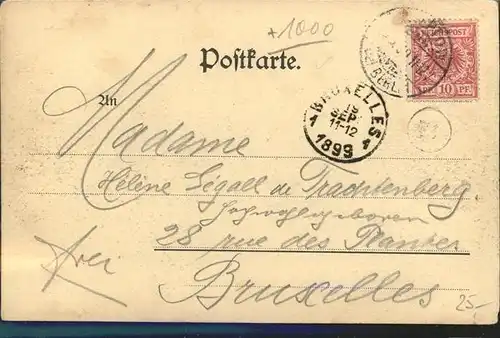 +1000
Postkarte.
REICHSPOST
10 PF.
BRUXELLES
1 15 SEP. 1
11-12
1899
An
Madame
Hélène Légall de Trachtenberg
Hochwohlgeboren
28 rue des Plantes
frei
Bruxelles
25-